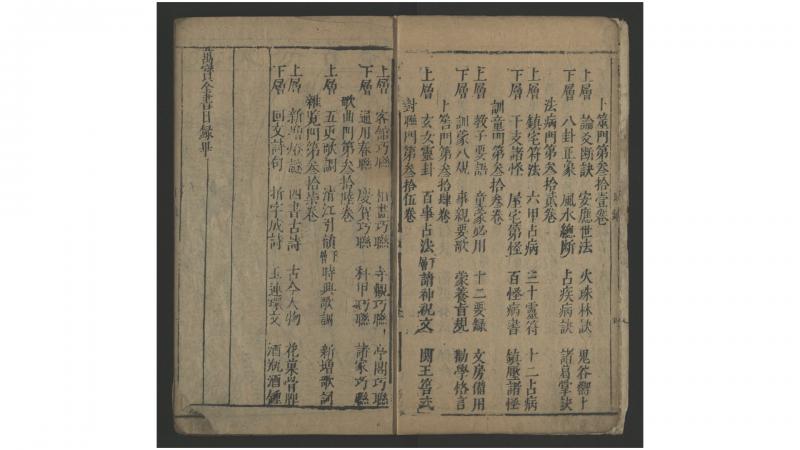 卜筮門第叁拾壹卷
上層 論爻斷訣 安應世法 火珠林訣 鬼谷響卜
下層 八卦正彖 風水總斷 占疾病訣 諸葛掌訣
法病門第叁拾貳卷
上層 鎮宅符法 六甲占病 三十靈符 十二占病
下層 干支諸怪 屋宅第怪 百怪病書 鎮壓諸怪
訓童門第叁拾叁卷
上層 教子要語 童蒙必用 十二要錄 文房備用
下層 訓蒙八規 事親要歌 蒙養首規 勸學格言
卜筶門第叁拾肆卷
上層 玄女靈封 百事占法 下層 請神祝文 關王筶式
對聯門第叁拾伍卷
上層 客館巧聯 巧聯 寺觀巧聯 亭閣巧聯
下層 通用春聯 慶賀巧聯 科甲巧聯 諸家巧聯
歌曲門第叁拾陸卷
上層 五更歌調 清江引 下層 時興歌調 新增歌詞
雜覽門第叁拾柒卷
上層 新增 謎 四書古詩 古今人物 花菓骨牌
下層 回文詩句 折字成詩 玉連環文 酒瓶酒鍾
萬寶全書目錄畢